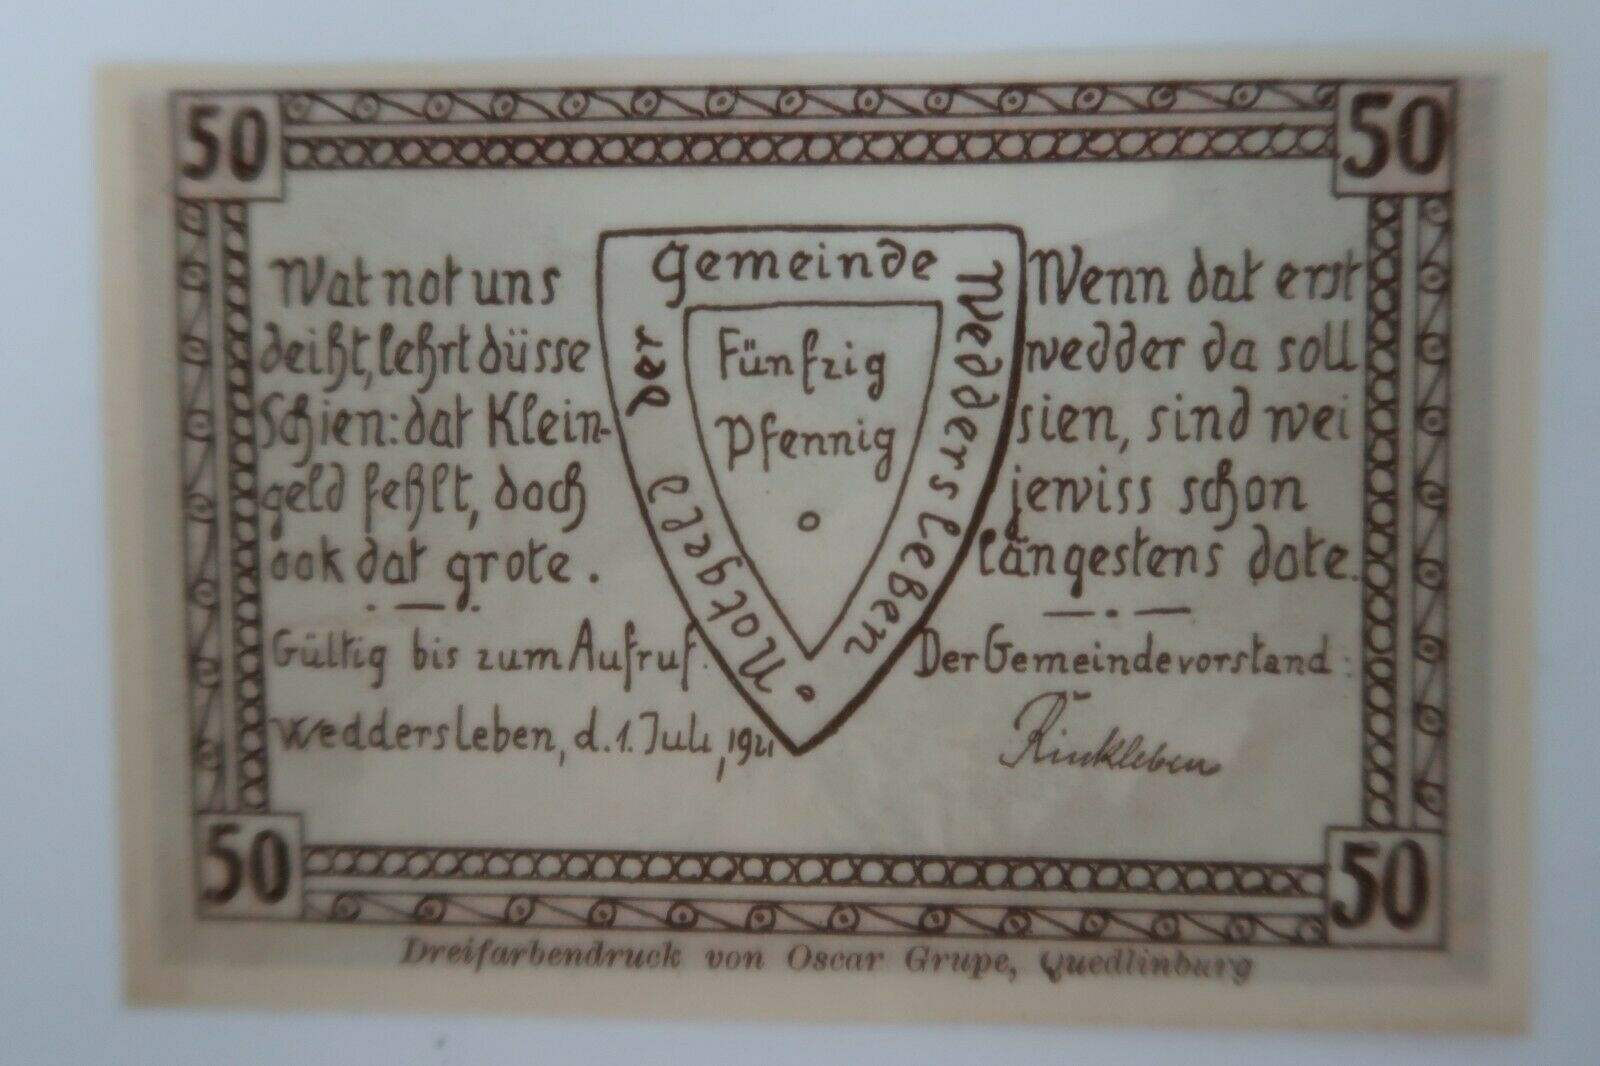 50
50
Wat not uns
deißt, lehrt düsse
Schien: dat Klein-
geld fehlt, doch
ook dat grote.
Gültig bis zum Aufruf.
Weddersleben, d. 1. Juli, 1921
Notgeld der Gemeinde Weddersleben
Fünfzig
Pfennig
Wenn dat erst
wedder da soll
sien, sind wei
jewiss schon
längestens dote.
Der Gemeindevorstand:
Rinkleben
50
50
Dreifarbendruck von Oscar Grupe, Quedlinburg